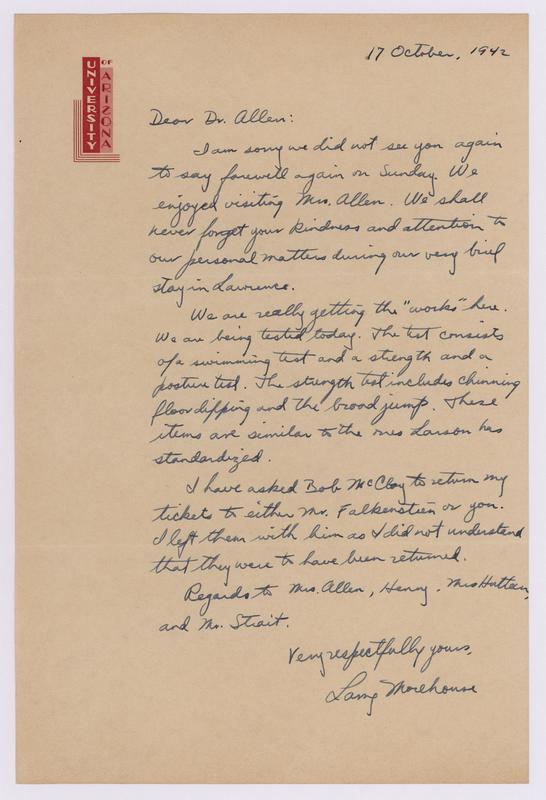 UNIVERSITY
OF ARIZONA
17 October, 1942
Dear Dr. Allen:
I am sorry we did not see you again
to say farewell again on Sunday. We
enjoyed visiting Mrs. Allen. We shall
never forget your kindness and attention to
our personal matters during our very brief
stay in Lawrence.
We are really getting the "works" here.
We are being tested today. The test consists
of a swimming test and a strength and a
posture test. The strength test includes chinning
floor dipping and the broad jump. These
items are similar to the ones Larson has
standardized.
I have asked Bob McCloy to return my
tickets to either Mr. Falkenstien or you.
I left them with him as I did not understand
that they were to have been returned.
Regards to Mrs. Allen, Henry, Miss Hulteen,
and Mr. Strait.
Very respectfully yours,
Larry Morehouse